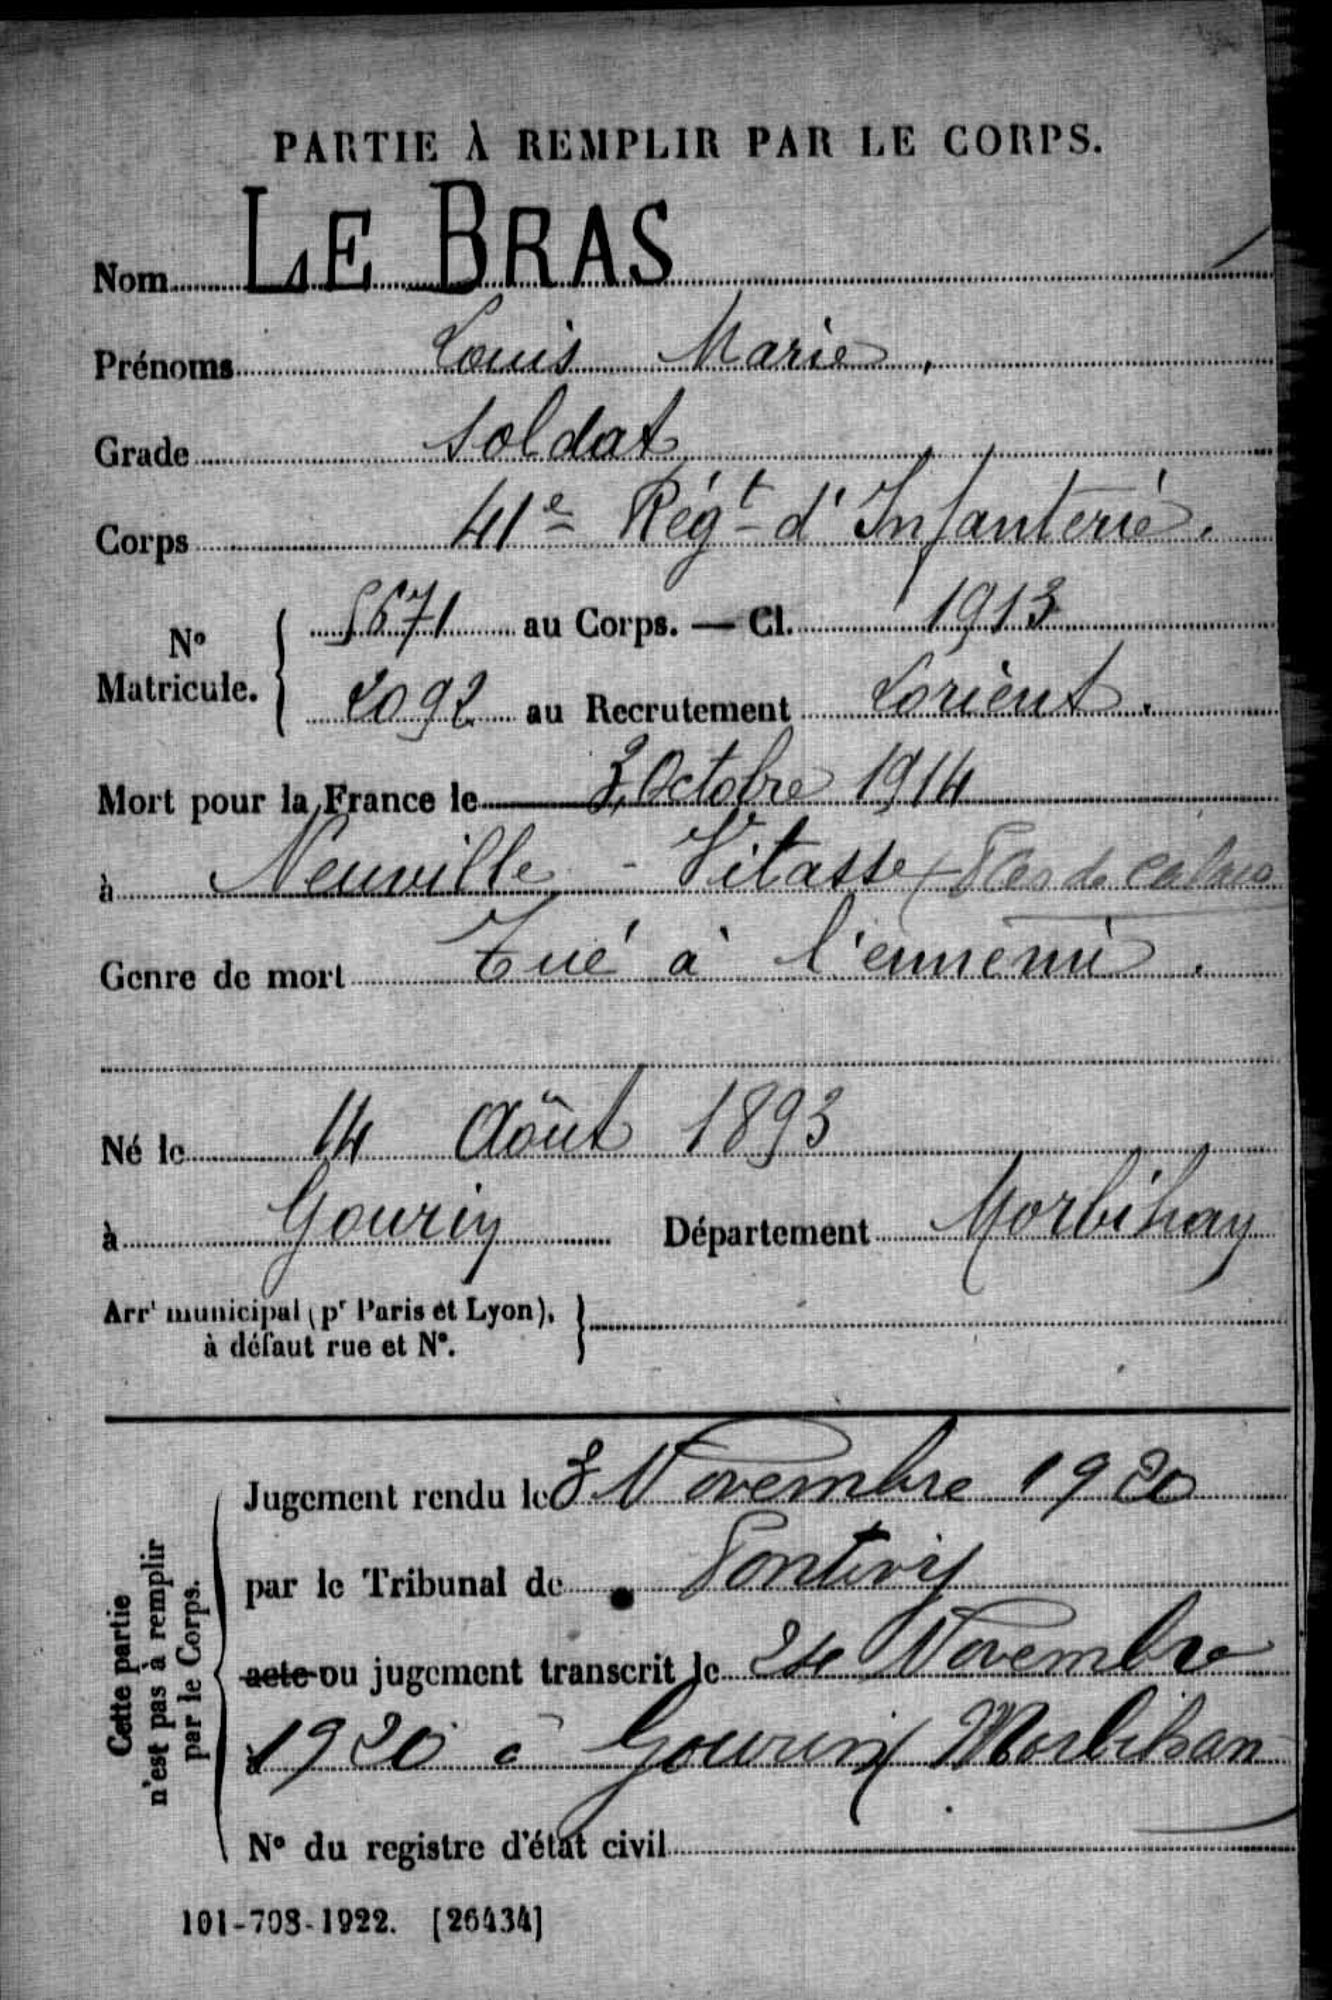 PARTIE À REMPLIR PAR LE CORPS.
Nom LE BRAS
Prénoms Louis Marie.
Grade Soldat
Corps 41e Régt d'Infanterie.
No Matricule. { 5671 au Corps. — Cl. 1913
2092 au Recrutement Lorient.
Mort pour la France le 3 Octobre 1914
à Neuville - Vitasse (Pas de Calais
Genre de mort Tué à l'ennemi.
Né le 14 Août 1893
à Gourin Département Morbihan
Arrt municipal (pr Paris et Lyon), }
à défaut rue et N°.
Cette partie n'est pas à remplir par le Corps.
Jugement rendu le Novembre 1920
par le Tribunal de Pontivy
acte ou jugement transcrit le 24 Novembre
à 1920 à Gourin (Morbihan
N° du registre d'état civil
101-708-1922. [26434]